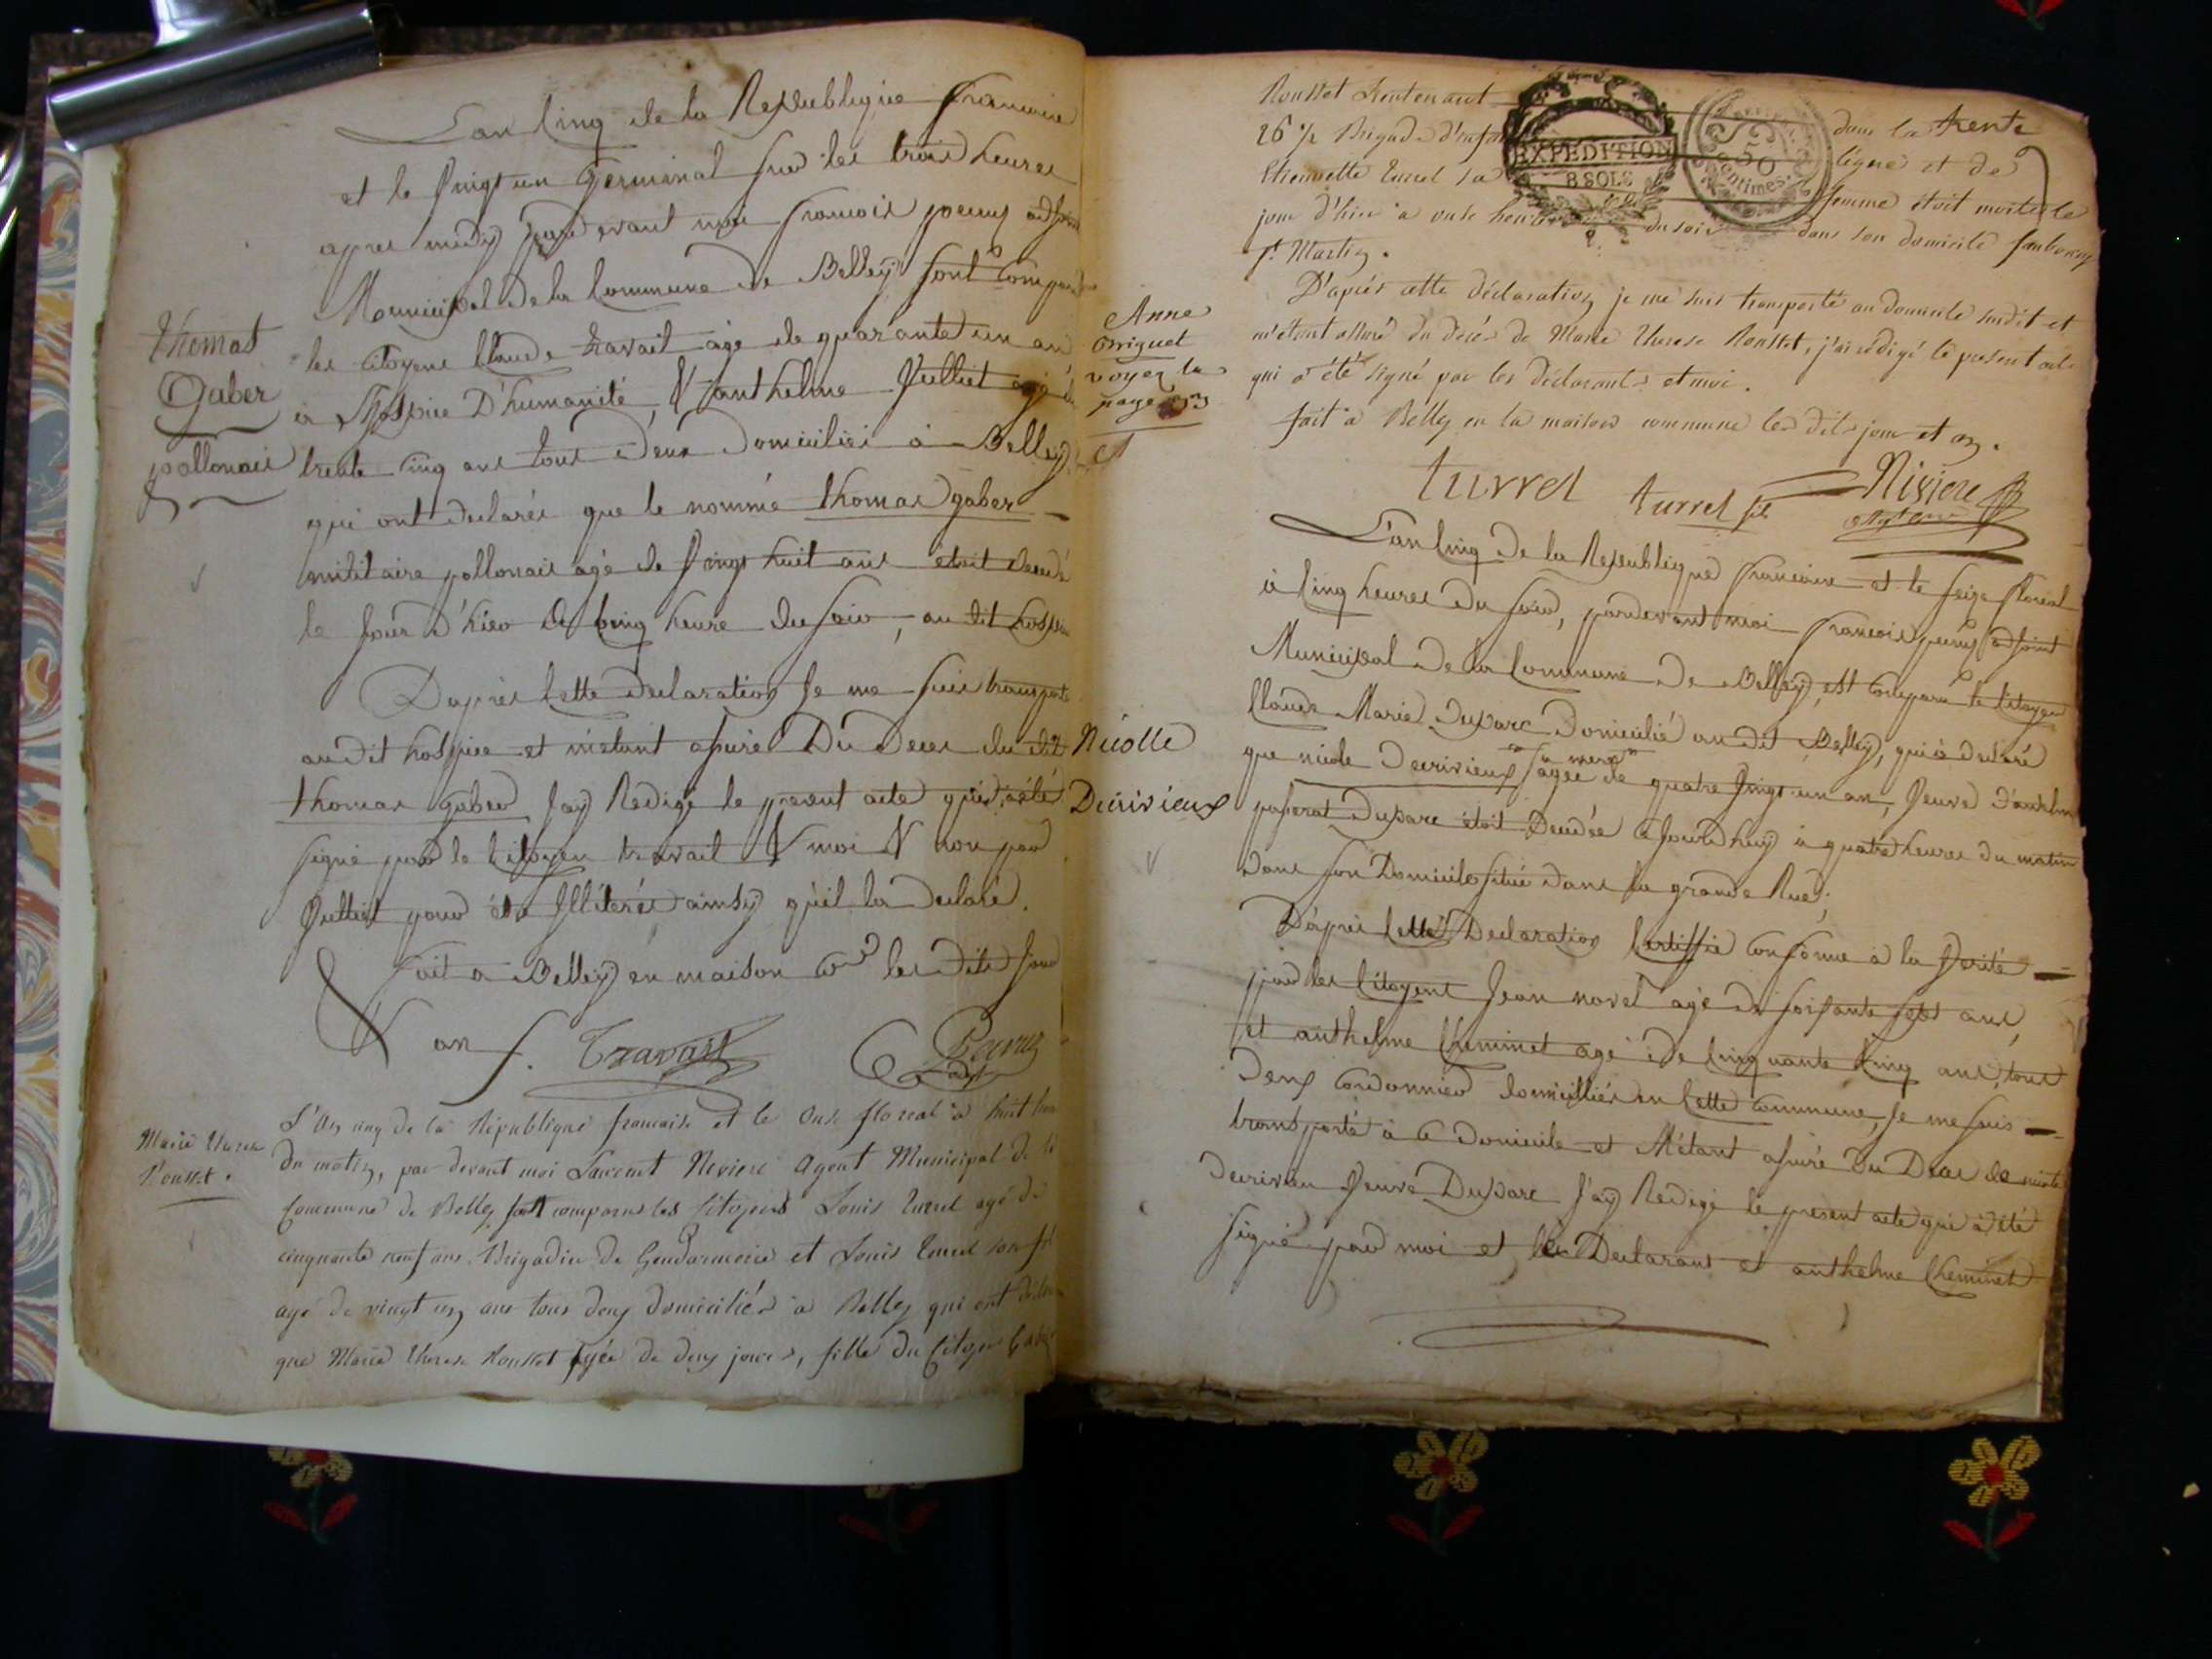 L'an Cinq de la Republique francaise
et le Vingt un Germinal sur les trois heures
apres midy pardevant moi francois peeuz adjoint
Municipal de la Commune de Belley sont comparus
Thomas
Gaber
pollonais
les citoyens Claude travait agé de quarante un an
à Lhospice D'humanité, & anthelme Julliet agé de
trente cinq ans tous deux Domiciliés à Belley
qui ont declarés que le nommé thomas gaber
militaire pollonais agé de Vingt huit ans étoit decedé
le jour d'hier à Cinq heure du soir, au dit hospice
Daprès Cette declaration Je me suis transporté
audit hospice et m'étant assuré Du Deces du dit
thomas Gaber Jay Redigé le present acte qui a été
signé par le Citoyen travait & moi & non par
Julliet pour être Illiteré ainsy qu'il l'a declaré.
fait a Belley en maison Cne les dits jour
& an f. Travait
Marie Therese
Rousset.
L'an cinq de la République francaise et le onze floreal à huit heures
du matin, par devant moi Laurent Niviere Agent Municipal de la
Commune de Belley sont comparus les Citoyens Louis Turrel agé de
cinquante neuf ans Brigadier de Gendarmerie et Louis Turrel son fils
agé de vingt un ans tous deux domiciliés à Belley qui ont déclaré
que Marie Therese Rousset agée de deux jours, fille du Citoyen
Rousset Lieutenant dans la trente
26 ½ Brigade d'infanterie ligne et de
Etiennette Turrel sa femme étoit morte le
jour d'hier à onze heures du soir dans son domicile faubourg
St Martin.
EXPÉDITION
8 SOLS
50
Centimes
Anne
Orriguet
voyez la
page
D'après cette déclaration je me suis transporté au domicile susdit et
m'étant assuré du decés de Marie Therese Rousset, j'ai rédigé le present acte
qui a été signé par les déclarants et moi.
fait à Belley en la maison commune les dits jour et an.
turrel turrel fils Niviere
L'an Cinq de la Republique francaise et le seize floreal
à Cinq heures du soir, pardevant moi francois peeuz adjoint
Municipal de la Commune de Belley, est comparu le Citoyen
Nicolle
Decrivieux
Claude Marie Duparc Domicilié audit Belley, qui a declaré
que nicole Decrivieux sa mere agée de quatre Vingt un an, Veuve d'anthelme
passerat Duparc étoit Decedée aJourd'huy à quatre heures du matin
dans son Domicile situé dans la grande Rue;
D'après Cette Declaration Certiffié Conforme à la Verité
par les Citoyens Jean novel agé de soixante sept ans
et anthelme Cheminet agé de Cinquante Cinq ans, tous
deux Cordonnier domicilliés en Cette Commune, Je me suis
transporté à Ce Domicile et M'étant assuré du Deces de nicole
decrivieu Veuve Duparc J'ay Redigé le present acte qui a été
signé par moi et le Declarant et anthelme Cheminet